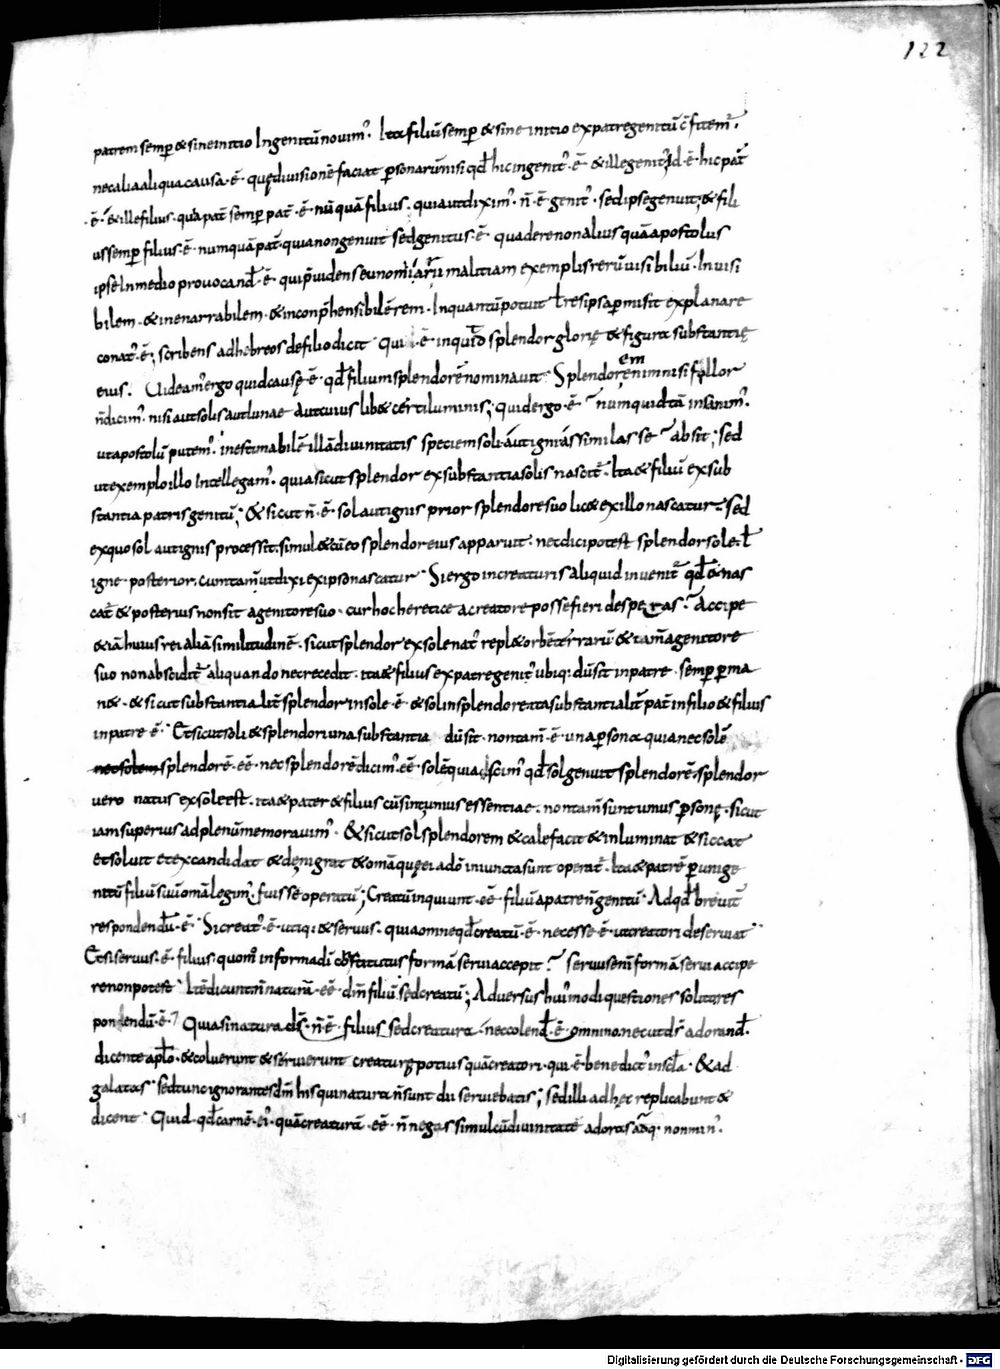 122
patrem semp̄ & sine initio Ingenitū novim᾿. Ita filiū semp̄ & sine initio ex patre genitū c̄fitem᾿.
nec alia aliqua causa · ē · quę divisionē faciat p̄sonarū nisi qđ hic ingenit᾿ · ē · & ille genit᾿ Id · ē · hic pat̄
· ē · & ille filius · quia pat̄ semp̄ pat̄ · ē · nūquā filius · quia ut dixim᾿ · n̄ · ē · genit᾿ · sed ipse genuit; & fili
us semp̄ filius · ē · numquā pat̄ · quia non genuit sed genitus · ē · qua de re non alius quā apostolus
ipse In medio provocand᾿ · ē · qui p̄videns eunomiarū malitiam exemplis rerū visibiliū · Invisi
bilem · & inenarrabilem · & inconp̄hensibilē rem · Inquantū potuit ł res ipsa p̄misit explanare
conat᾿ · ē ; scribens ad hebreos de filio dicit · qui · ē · inquid splendor glorię & figura substantię
eius. Videam᾿ ergo quid causę · ē · qđ filium splendorē nominavit · Splendorem enim nisi fulgor
n̄ dicim᾿ · nisi aut solis aut lunae aut cuius lib& certi luminis; quid ergo · ē · numquid tā insanim᾿ ·
ut apostolū putem᾿ · inestimabilē illā divinitatis speciem soli aut igni assimilasse absit; sed
ut exemplo illo Intellegam᾿ · quia sicut splendor ex substantia solis nascit᾿ · Ita & filiū ex sub
stantia patris genitū; & sicut n̄ · ē · sol aut ignis prior splendore suo lic& ex illo nascatur · sed
ex quo sol aut ignis processit · simul & cū eo splendor eius apparuit · nec dici potest splendor sole ł
igne posterior · cum tam̄ ut dixi ex ipso nascatur Si ergo in creaturis aliquid invenit᾿ qđ & nas
cat᾿ & posterius non sit a genitore suo · cur hoc heretice a creatore posse fieri desperas Accipe
& iā huius rei aliā similitudinē · sicut splendor ex sole nat᾿ repl& orbē terrarū & tam̄ a genitore
suo non abscidit᾿ aliquando nec recedit · ita & filius ex patre genit᾿ ubiq; dū sit in patre · semp̄ p̄ma
n& · & sicut substantialit᾿ splendor in sole · ē · & sol in splendore ita substantialit᾿ pat̄ in filio & filius
in patre · ē · Et sicut soli & splendori una substantia dū sit · non tam̄ · ē · una p̄sona quia nec solē
nec solem splendorē · eē · nec splendorē dicim᾿ · eē · solē quia scim᾿ qđ sol genuit splendorē · splendor
vero natus ex sole est · ita & pater & filius cū sint unius essentiae · non tam̄ sunt unius p̄sonę · sicut
iam superius ad plenū memoravim᾿ · & sicut sol splendorem & calefacit & inluminat & siccat
et solvit et excandidat & denigrat & om̄a quę ei a do iniuncta sunt operat᾿ · Ita & patrē p̄ unige
nitū filiū suū om̄a legim᾿ · fuisse operatū; Creatū inquiunt · eē · filiū a patre n̄ genitū · Ad qđ brevit᾿
respondendū · ē · Si creat᾿ · ē · utiq; & servus · quia omne qđ creatū · ē · necesse · ē · ut creatori deserviat
Et si servus · ē · filius · quom̊ in forma dī c̄stitutus formā servi accepit servus enī formā servi accipe
re non potest Itē dicunt n̄ naturā · eē · dm̄ filiū sed creatū; Adversus huim᾿odi questiones solut res
pondendū · ē · Quia si natura ds̄ · n̄ · ē · filius sed creatura nec colend᾿ · ē · omnino nec ut ds̄ adorand᾿ ·
dicente apl̄o · & coluerunt & servierunt creaturę potius quā creatori · qui · ē · benedict᾿ in scl̄a · & ad
galatas sed tunc ignorantes dm̄ his qui natura n̄ sunt dii serviebatis; sed illi ad hęc replicabunt &
dicent · Quid · qđ carnē · ei᾿ · quā creaturā · eē · n̄ negas simul cū divinitate adoras adq᾿ · non min᾿ ·
Digitalisierung gefördert durch die Deutsche Forschungsgemeinschaft - DFG